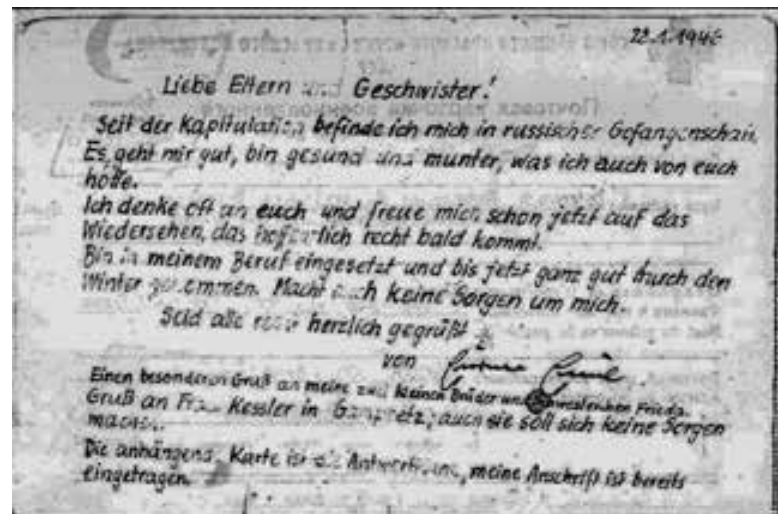 22.1.1946
Liebe Eltern und Geschwister!
Seit der Kapitulation befinde ich mich in russischer Gefangenschaft.
Es geht mir gut, bin gesund und munter, was ich auch von euch
hoffe.
Ich denke oft an euch und freue mich schon jetzt auf das
Wiedersehen, das hoffentlich recht bald kommt.
Bin in meinem Beruf eingesetzt und bis jetzt ganz gut durch den
Winter gekommen. Macht euch keine Sorgen um mich.
Seid alle recht herzlich gegrüßt
von
Einen besonderen Gruß an meine zwei kleinen Brüder und Frieda.
Gruß an Frau Kessler in auch sie soll sich keine Sorgen
machen.
Die anhängende Karte ist die meine Anschrift ist bereits
eingetragen.